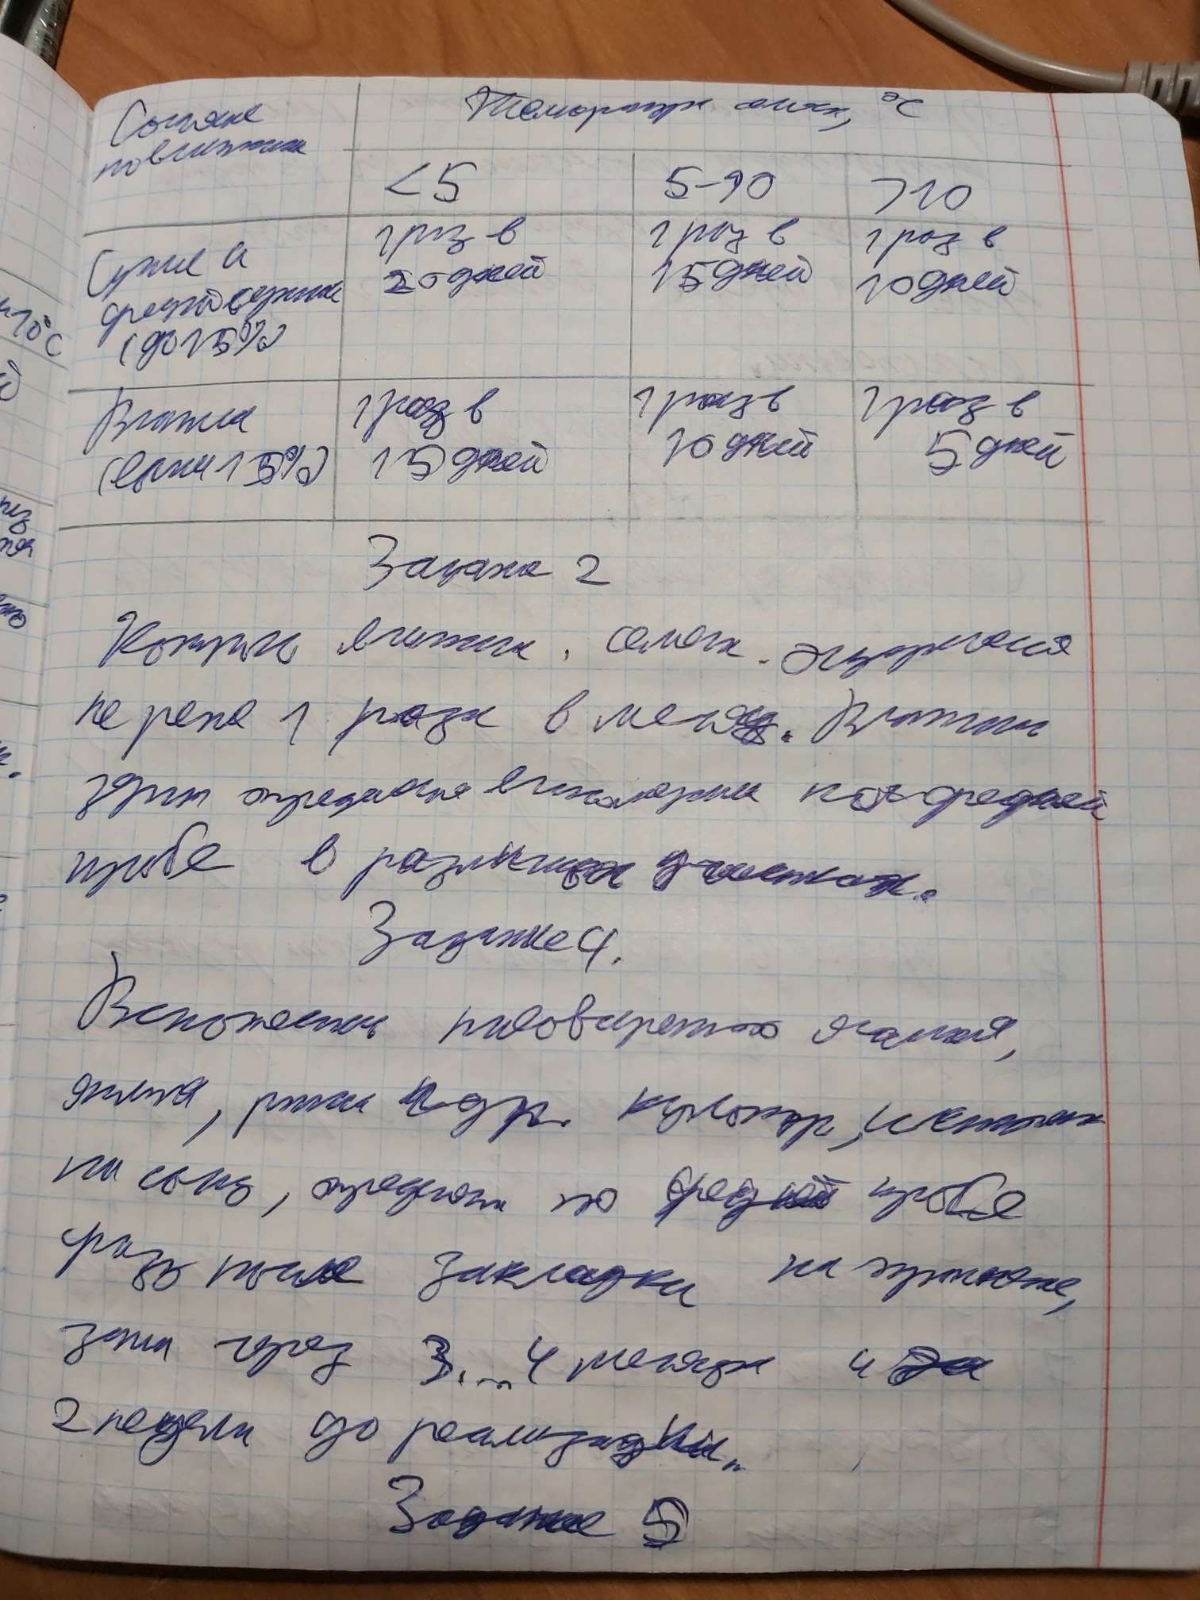 Состояне Температура семян, °C
по влажности
<5 5-10 >10
Сухие и 1 раз в 1 раз в 1 раз в
средней сухости 20 дней 15 дней 10 дней
(до 15%)
Влажные 1 раз в 1 раз в 1 раз в
(выше 15%) 15 дней 10 дней 5 дней
Задание 2
Контроль влажн. семян.
не реже 1 раза в месяц. Влажность
зерна определяют влагомерами по средней
пробе в различных участках.
Задание 4.
Всхожесть пивоваренного ячменя,
ячменя, ржи и др. культур,
на солод, определяют по средней пробе
сразу после закладки на хранение,
затем через 3...4 месяца и за
2 недели до реализации.
Задание 5
10°C